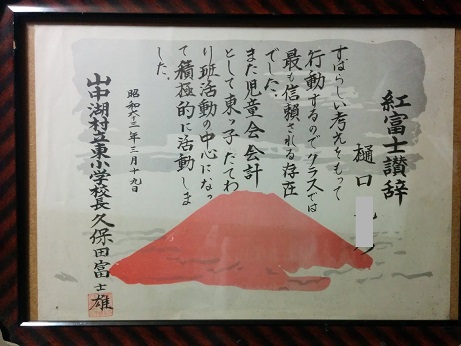 紅富士讃辞
樋口
すばらしい考えをもって
行動するのでクラスでは
最も信頼される存在
でした。
また児童会会計
として東っ子たてわ
り班活動の中心になっ
て積極的に活動しま
した。
昭和六十三年三月十九日
山中湖村立東小学校長久保田富士雄